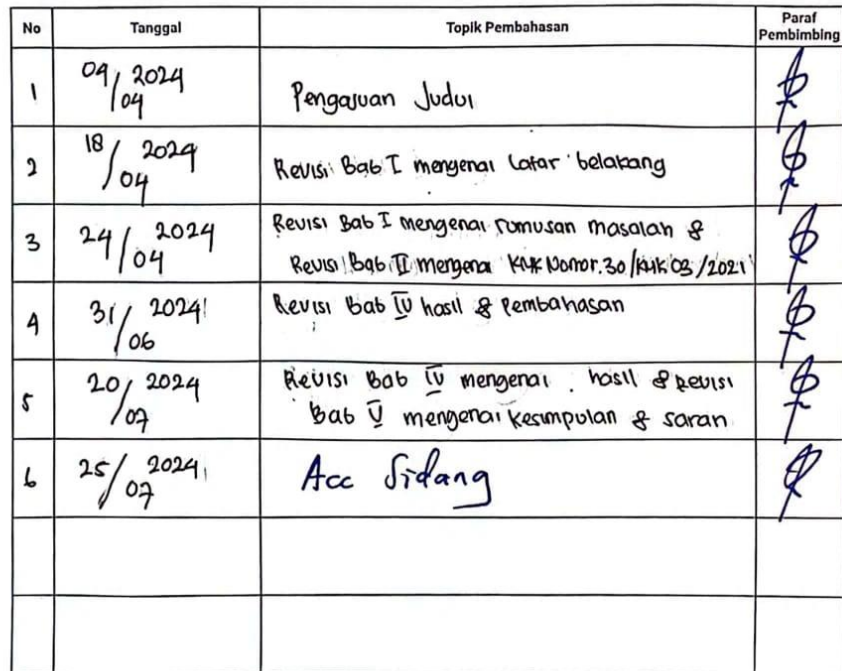 No Tanggal Topik Pembahasan Paraf Pembimbing
1 04/04 2024 Pengajuan Judul
2 18/04 2024 Revisi Bab I mengenai latar belakang
3 24/04 2024 Revisi Bab I mengenai rumusan masalah &
Revisi Bab II mengenai KMK Nomor.30/KMK 03/2021
4 31/06 2024 Revisi Bab IV hasil & Pembahasan
5 20/07 2024 Revisi Bab IV mengenai hasil & Revisi
Bab V mengenai kesimpulan & saran
6 25/07 2024 Acc Sidang